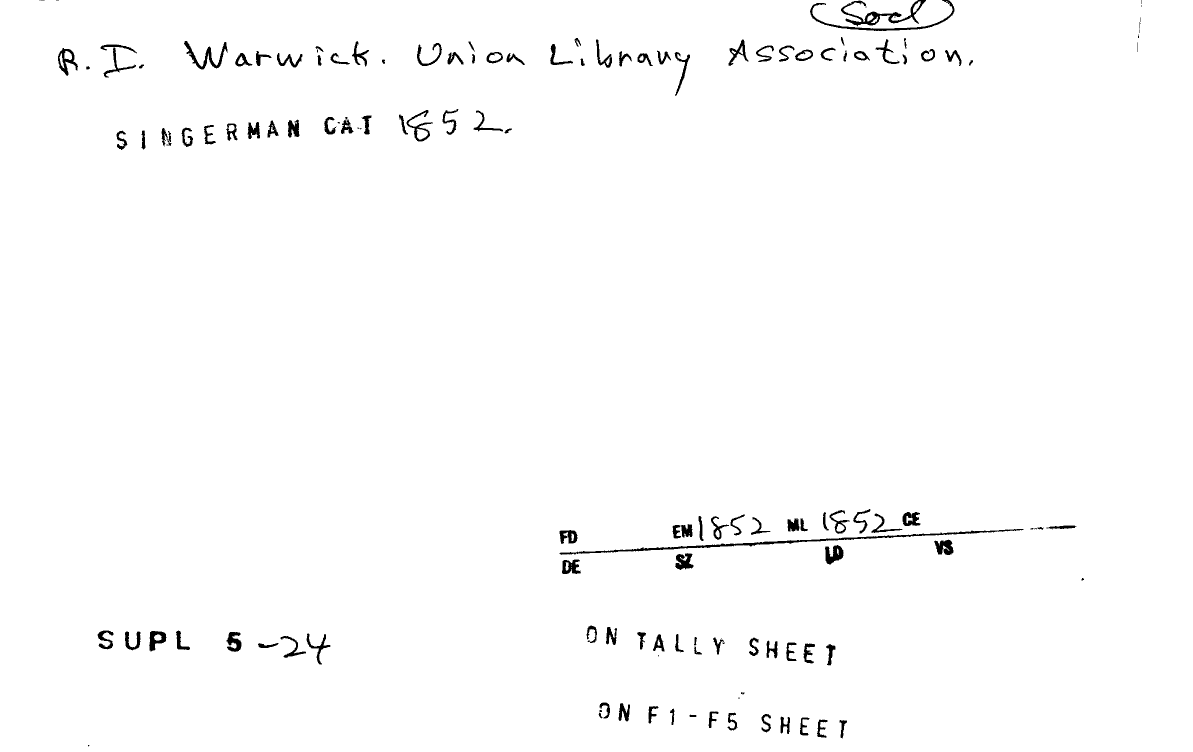 Socl
R.I. Warwick. Union Library Association.
SINGERMAN CAT 1852.
FD EM 1852 ML 1852 CE
DE SZ LD VS
SUPL 5-24
ON TALLY SHEET
ON F1-F5 SHEET